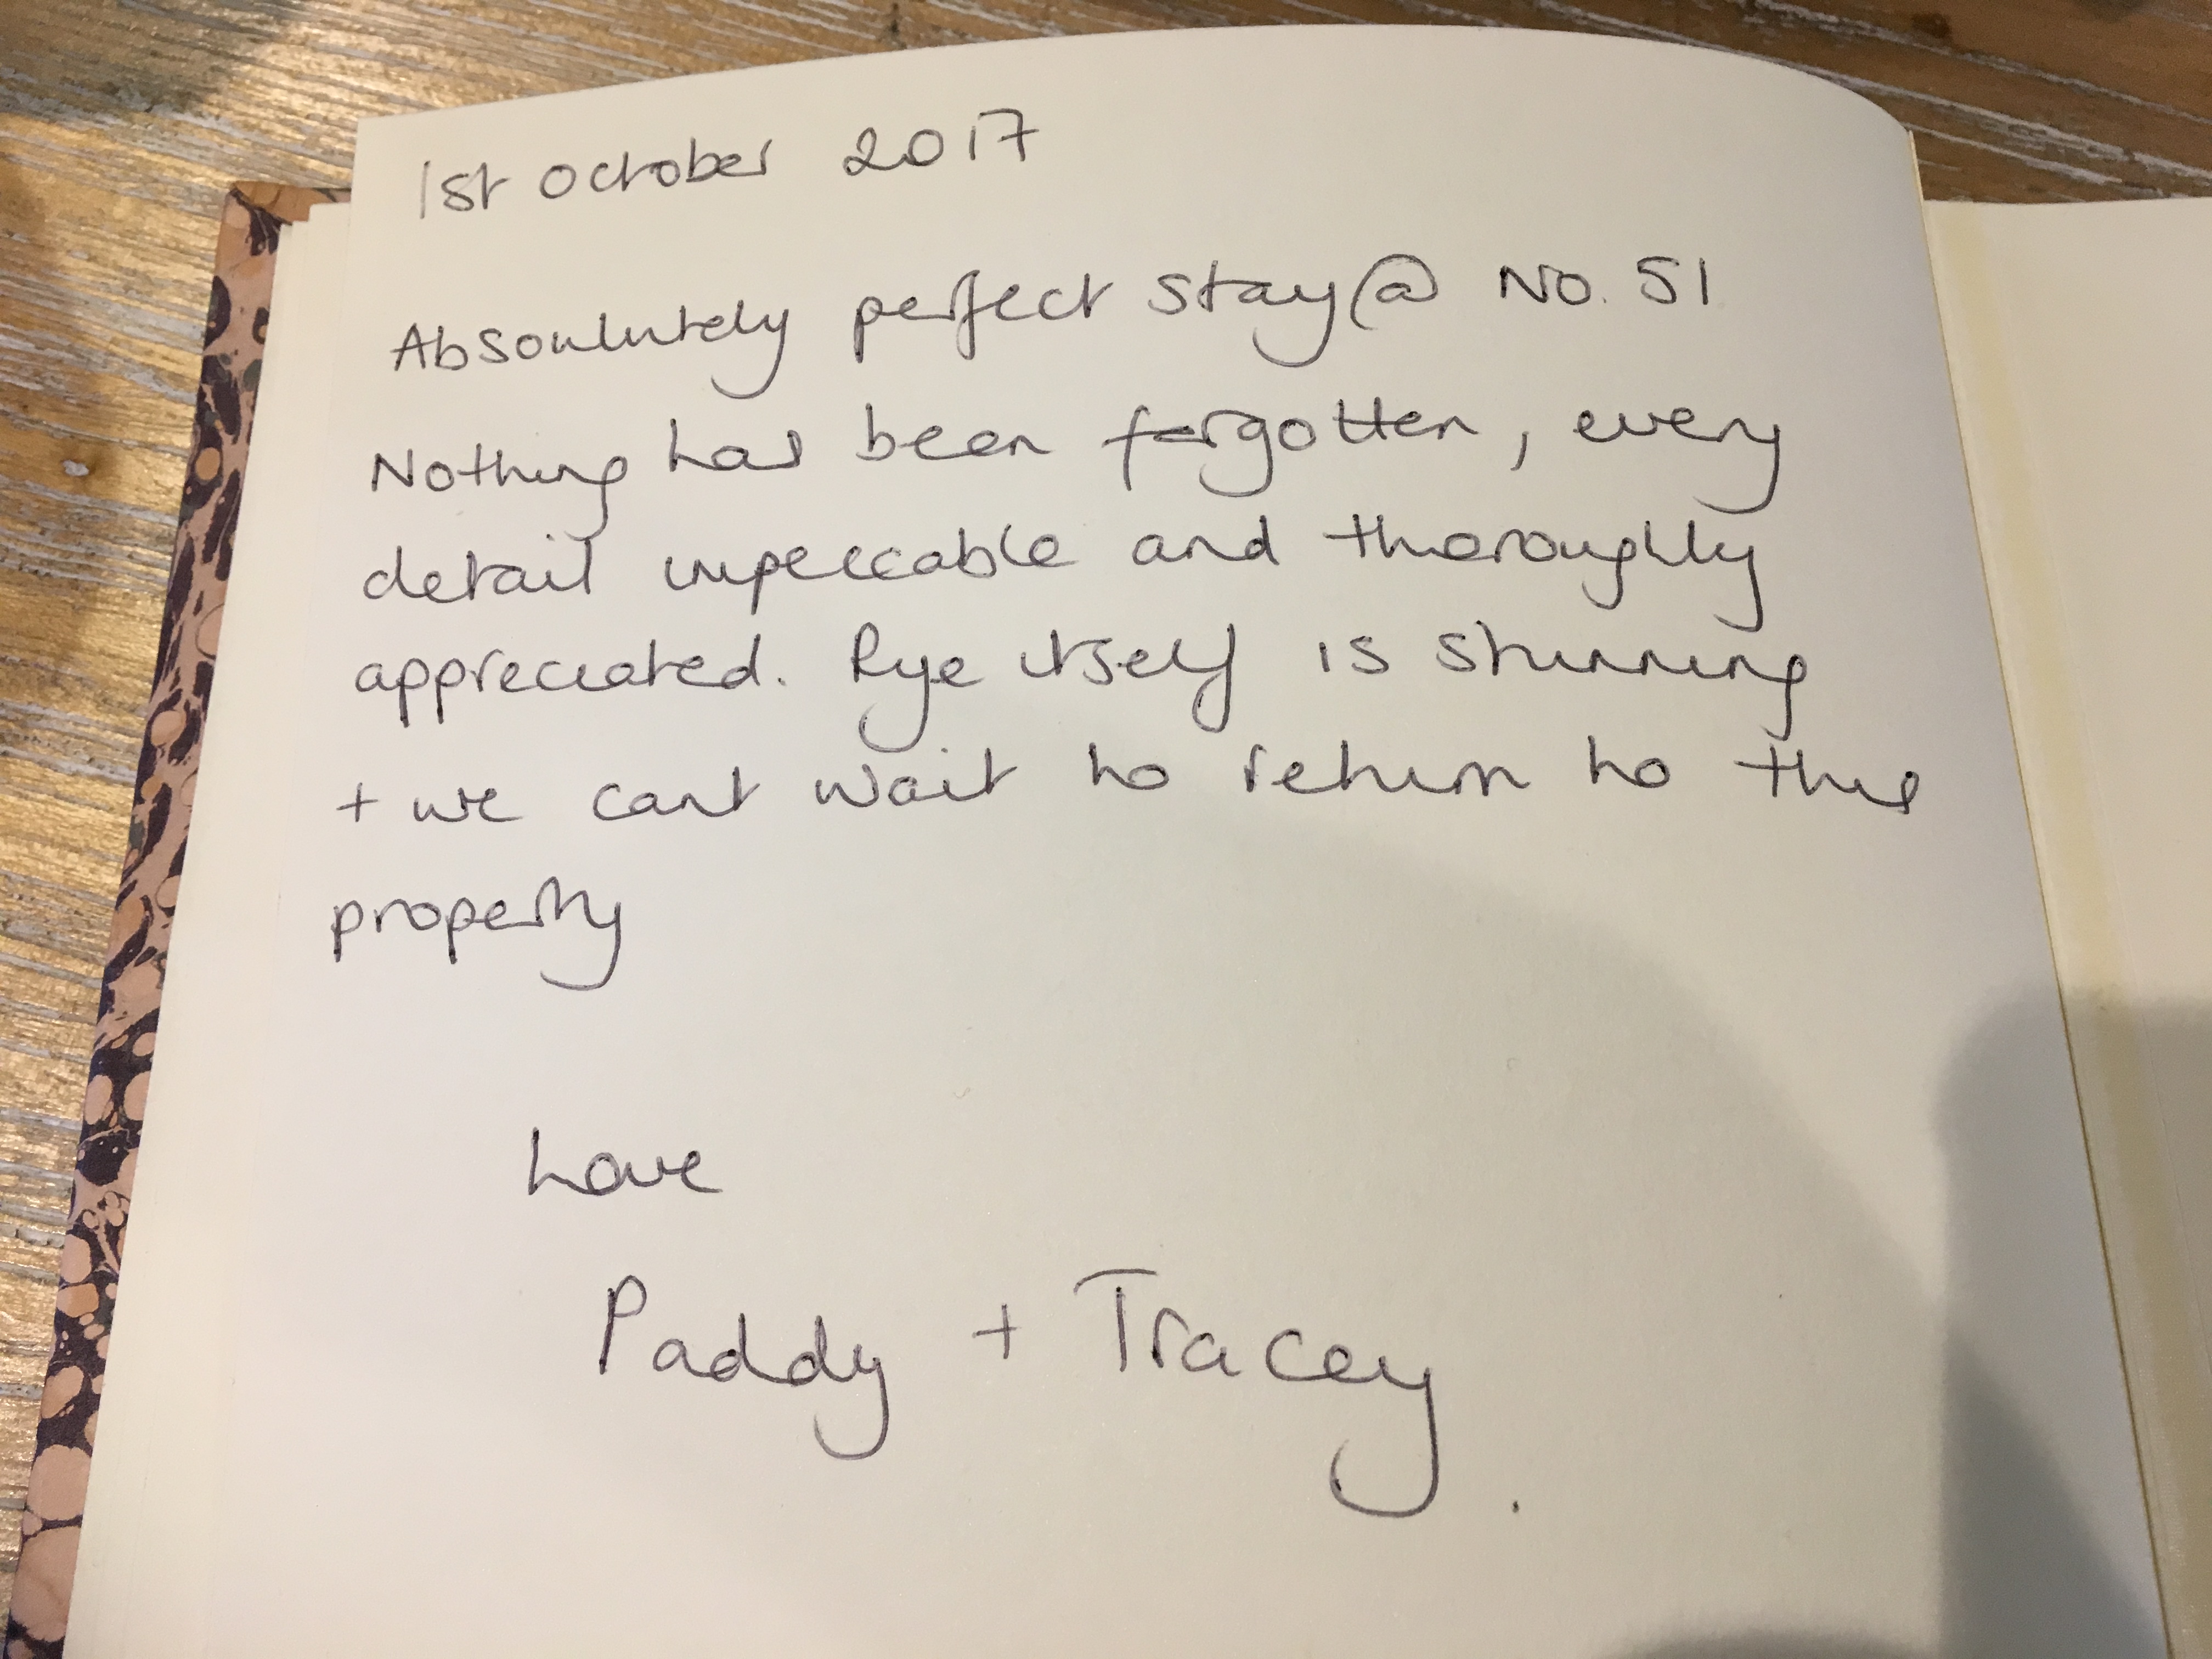 1st October 2017
Absoulutely perfect stay @ No. 51
Nothing has been forgotten, every
detail impeccable and thoroughly
appreciated. Rye itself is stunning
+ we cant wait to return to this
property
Love
Paddy + Tracey.